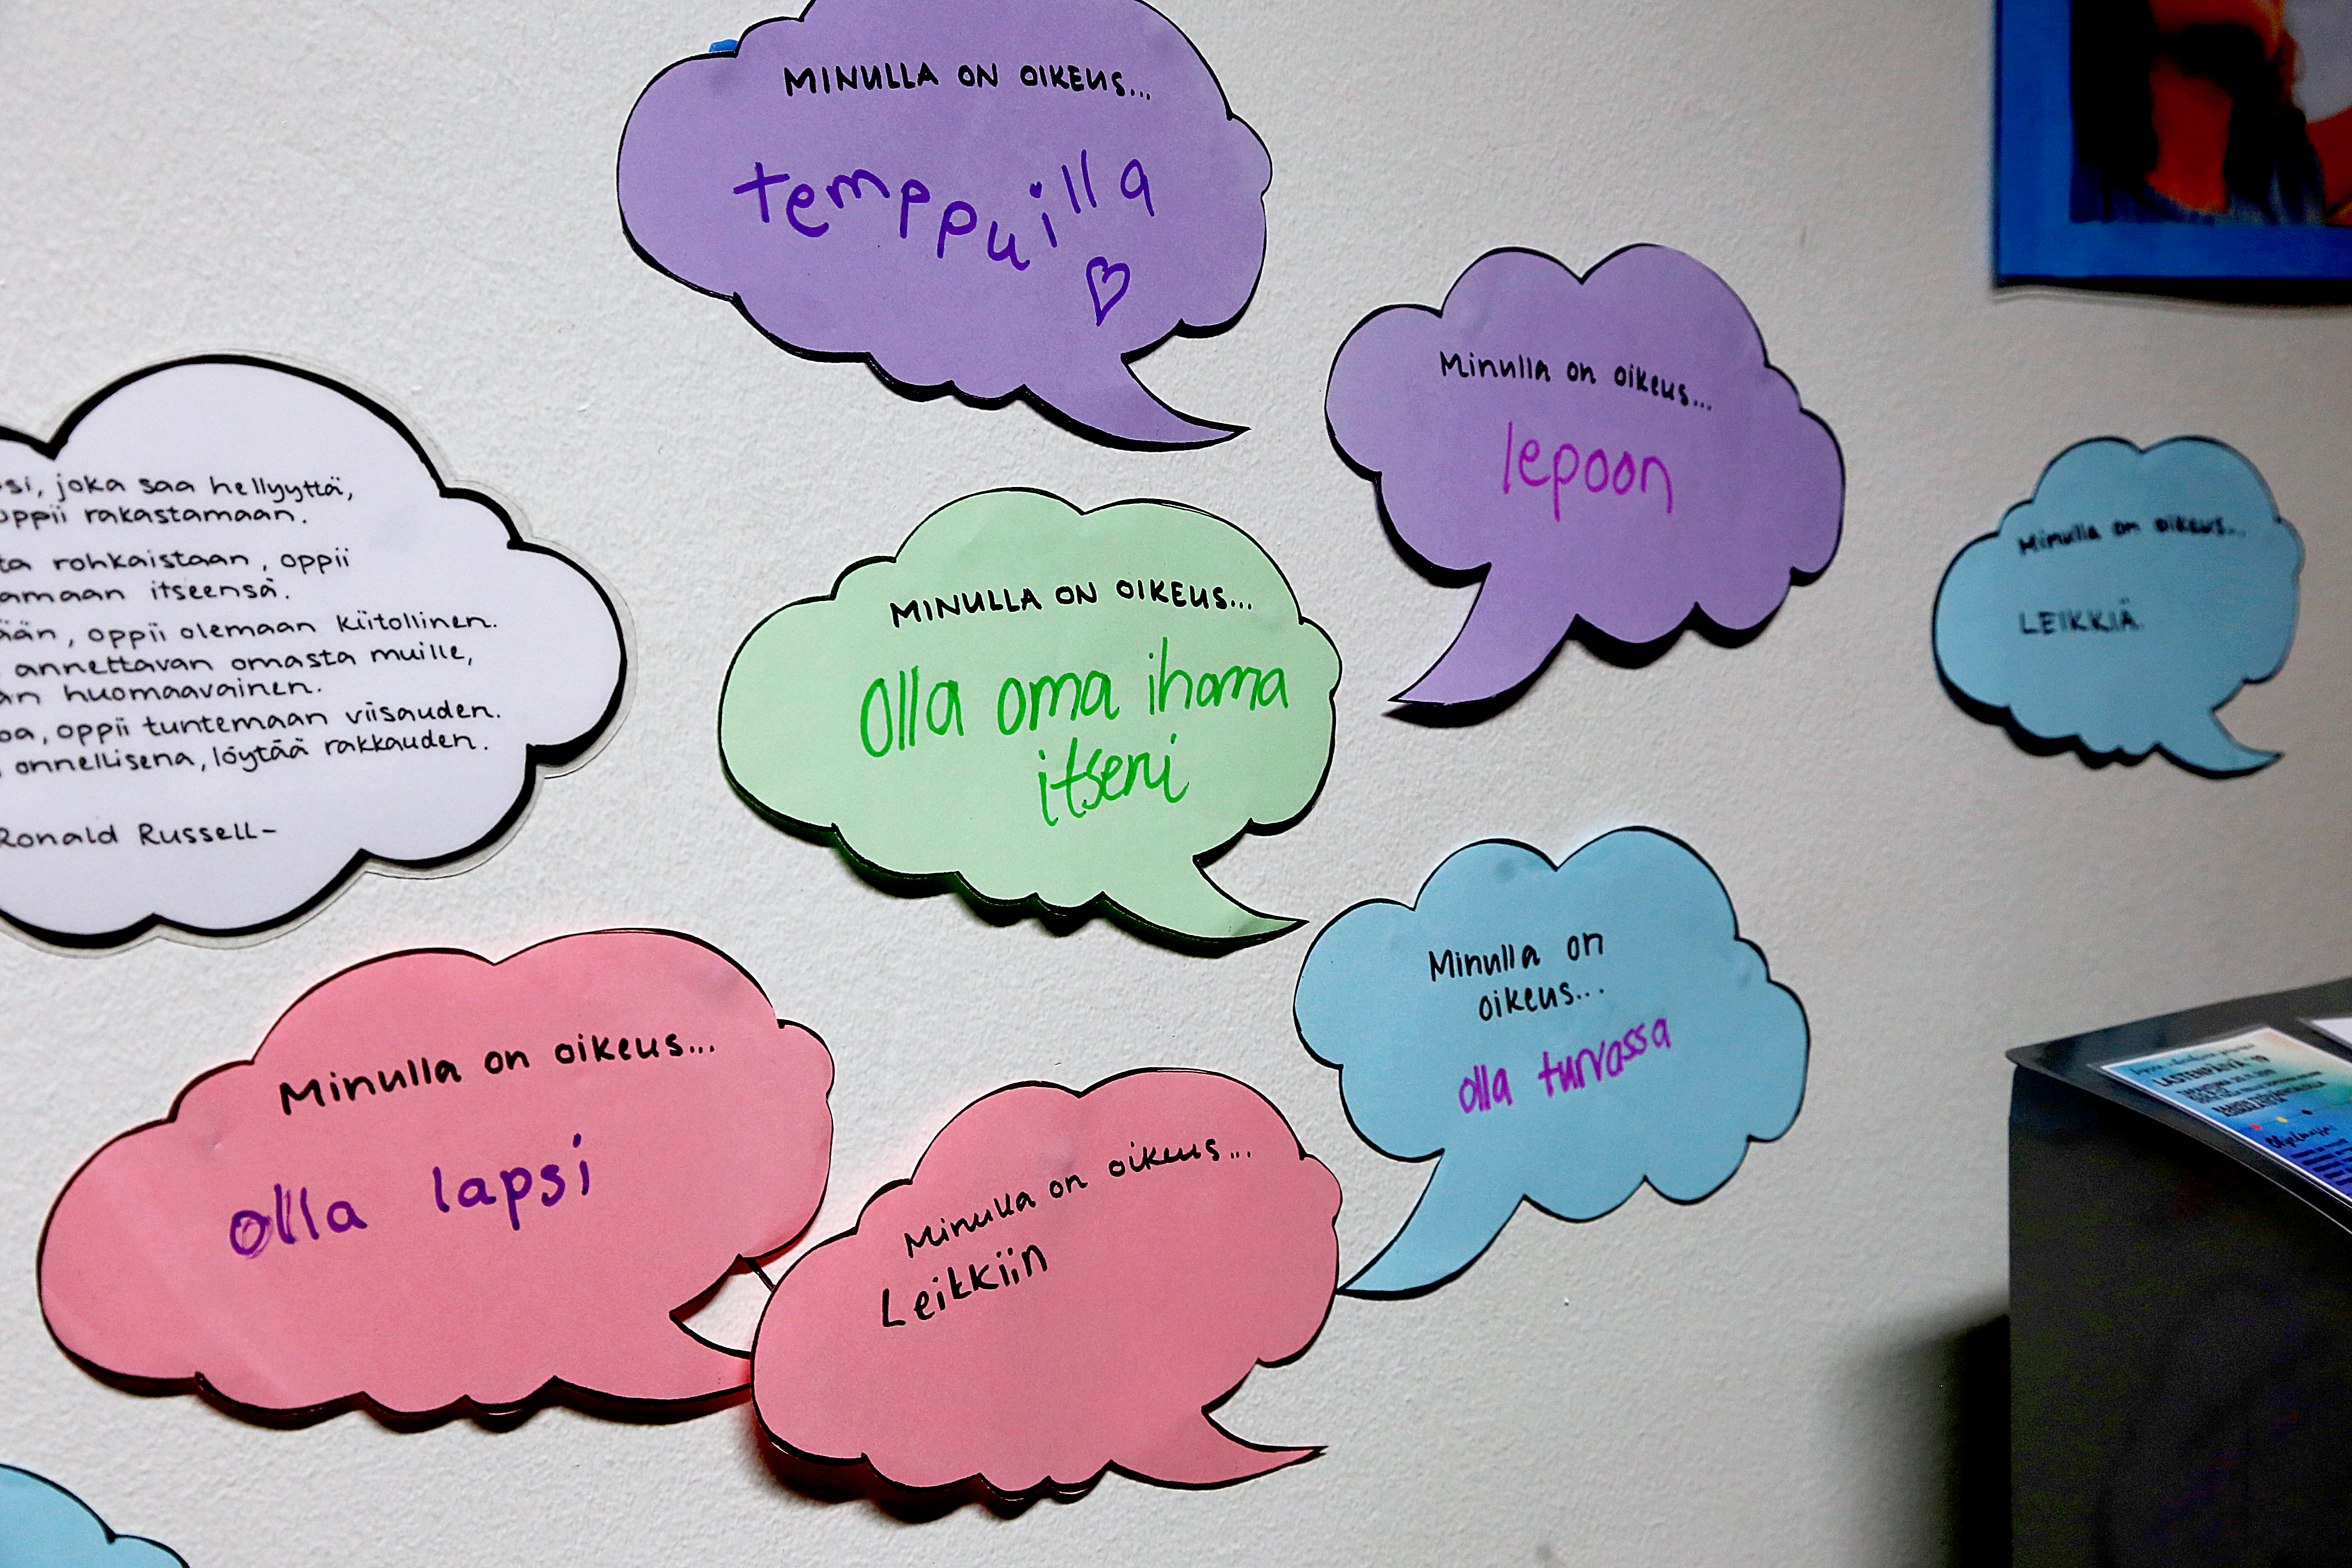 MINULLA ON OIKEUS...
temppuilla
Minulla on oikeus...
lepoon
joka saa hellyyttä,
oppii rakastamaan.
rohkaistaan, oppii
itseensä.
oppii olemaan kiitollinen.
annettavan omasta muille,
huomaavainen.
oppii tuntemaan viisauden.
onnellisena, löytää rakkauden.
Ronald Russell-
MINULLA ON OIKEUS...
olla oma ihana
itseni
Minulla on oikeus...
LEIKKIÄ.
Minulla on
oikeus...
olla turvassa
Minulla on oikeus...
olla lapsi
Minulla on oikeus...
Leikkiin
LASTENPÄIVÄ